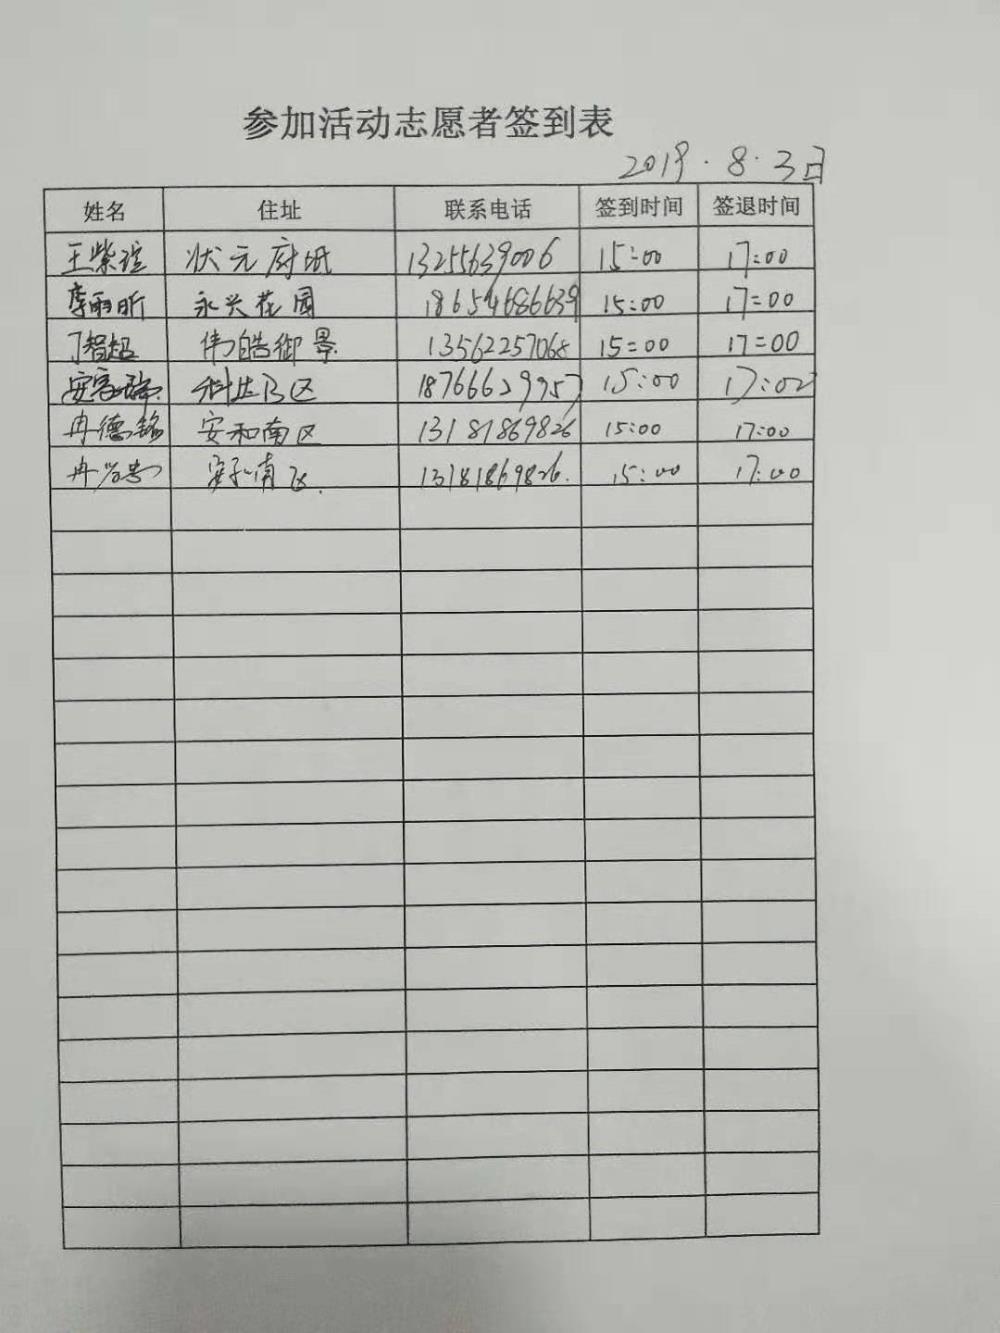 参加活动志愿者签到表
2019.8.3日
姓名 住址 联系电话 签到时间 签退时间
王紫瑄 状元府邸 13255639006 15:00 17:00
李雨昕 永兴花园 18654686639 15:00 17=00
丁智超 伟皓御景 13562257068 15=00 17=00
安 区 18766629957 15:00 17:00
冉德铭 安和南区 13181869826 15:00 17:00
冉 安和南区. 13181869826. 15:00 17:00